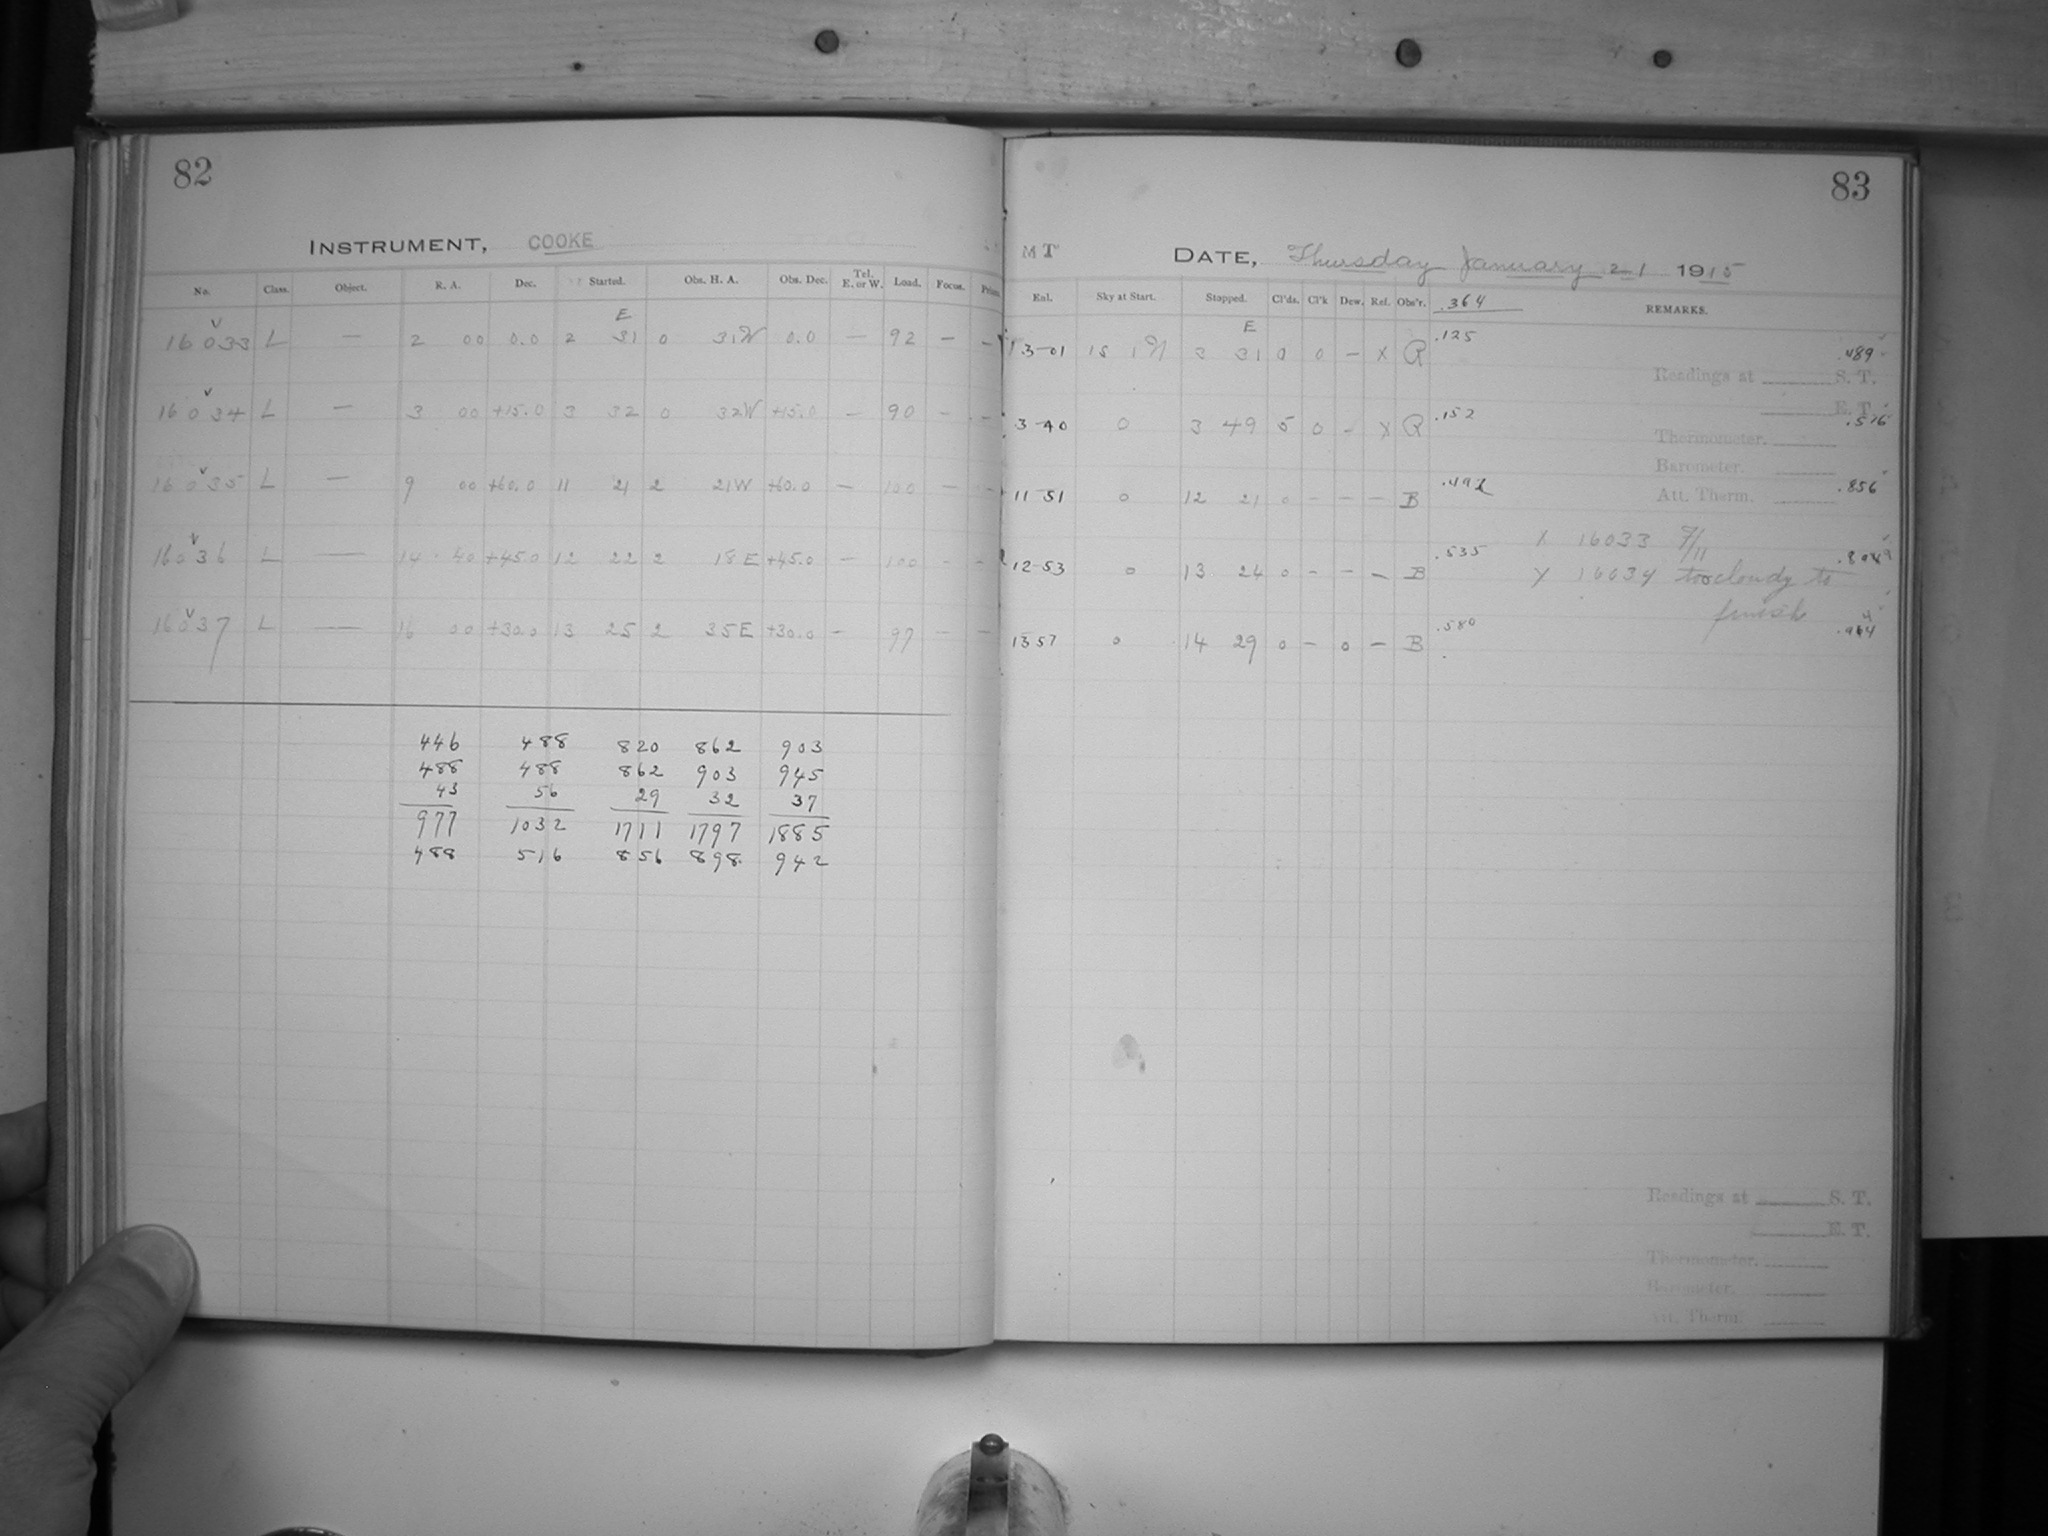 82
INSTRUMENT, COOKE
No. Class. Object. R. A. Dec. Started. Obs. H. A. Obs. Dec. Tel. E. or W. Load. Focus.
E
16033 L — 2 00 0.0 2 31 0 31W 0.0 — 92 — —
16034 L — 3 00 +15.0 3 32 0 32W +15.0 — 90 — —
16035 L — 9 00 +60.0 11 21 2 21W +60.0 — 100 — —
16036 L — 14 40 +45.0 12 22 2 18E +45.0 — 100 — —
16037 L — 16 00 +30.0 13 25 2 35E +30.0 — 97 — —
446 488 820 862 903
488 488 862 903 945
43 56 29 32 37
977 1032 1711 1797 1885
488 516 856 898 942
83
MT DATE, Thursday January 21 1915
Exl. Sky at Start. Stopped. Cl'ds. Cl'k Dew. Ref. Obs'r. .364 REMARKS.
E
3-01 3 31 0 0 — X R .125 .489
Readings at S. T.
E. T.
3-40 0 3 49 5 0 – X R .152 .516
Thermometer.
Barometer.
Att. Therm.
11-51 0 12 21 0 – – – B .856
X 16033
12-53 0 13 24 0 – – – B .535
Y 16034 too cloudy to
finish
1357 0 14 29 0 – 0 – B .580
Readings at S. T.
E. T.
Thermometer.
Barometer.
Att. Therm.